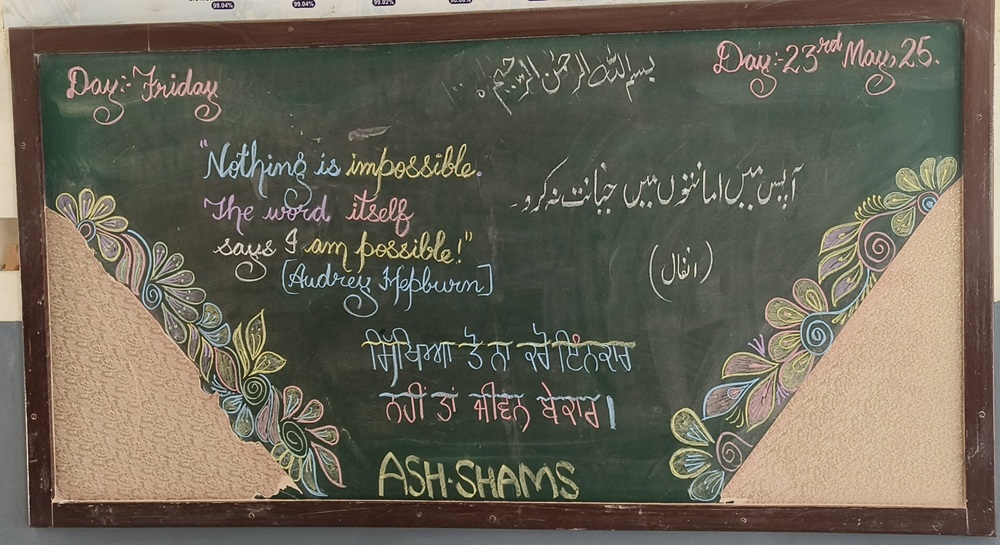 99.04% 99.04% 99.02%
Day:- Friday
بسم اللہ الرحمٰن الرحیم ہ
Day:- 23rd May, 25.
"Nothing is impossible.
The word itself
says I am possible!"
[Audrey Hepburn]
آپس میں امانتوں میں خیانت نہ کرو۔
(انفال)
ਸਿੱਖਿਆ ਤੋ ਨਾ ਕਰੋ ਇਨਕਾਰ
ਨਹੀਂ ਤਾਂ ਜੀਵਨ ਬੇਕਾਰ।
ASH-SHAMS